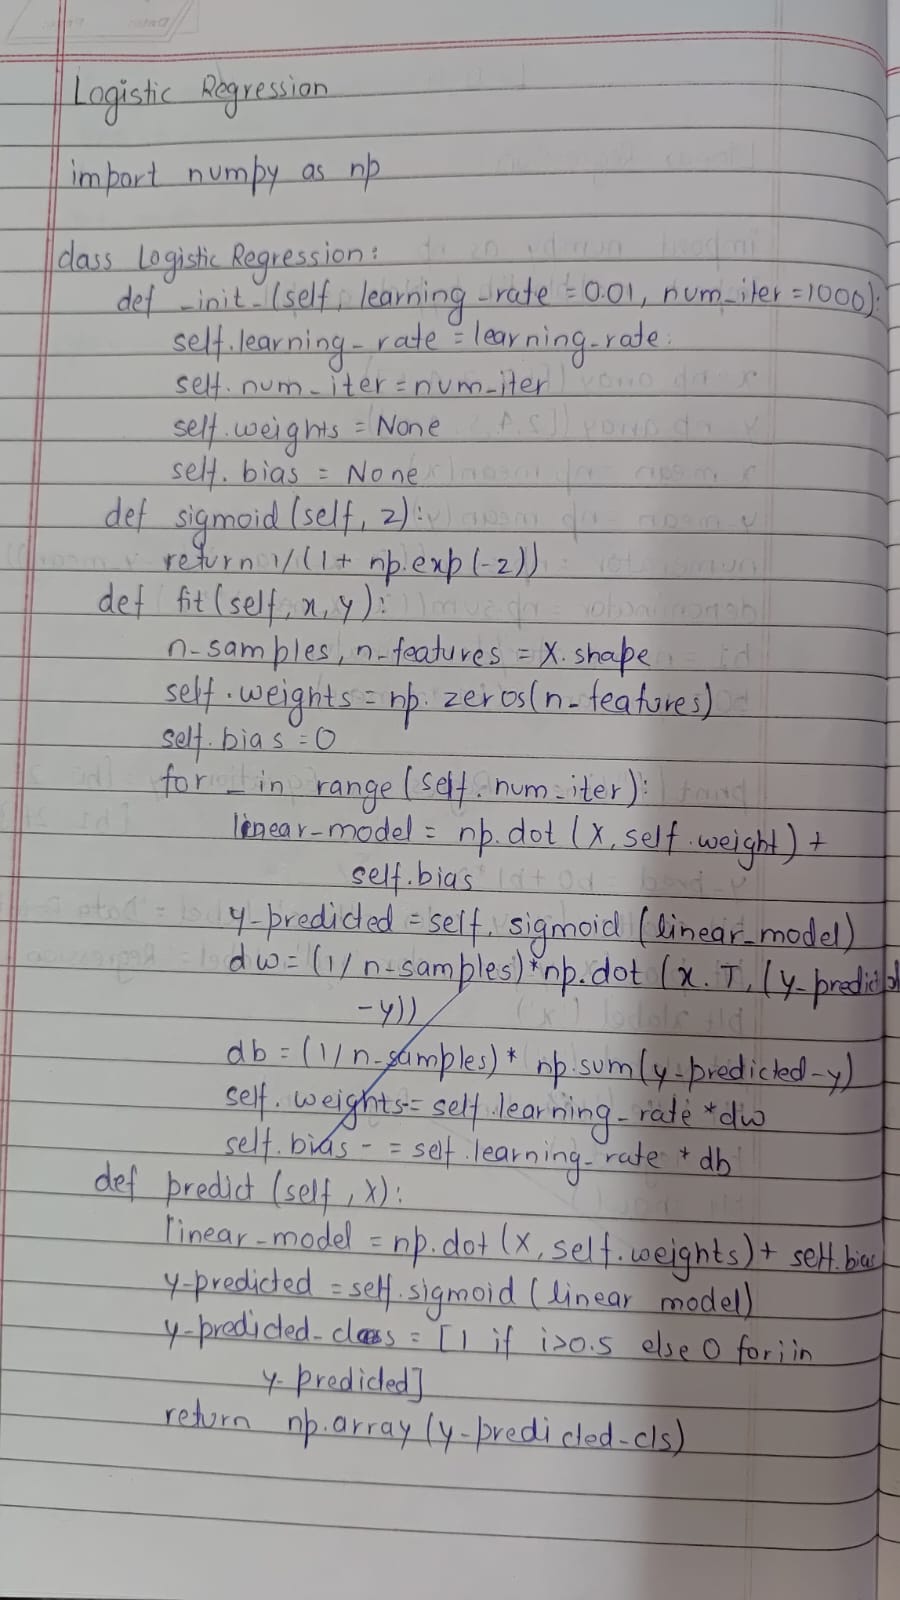 Logistic Regression
import numpy as np
class Logistic Regression:
def _init_(self, learning_rate = 0.01, num_iter = 1000):
self.learning_rate = learning_rate
self.num_iter = num_iter
self.weights = None
self.bias = None
def sigmoid(self, z):
return 1/(1 + np.exp(-z))
def fit(self, x, y):
n_samples, n_features = X.shape
self.weights = np.zeros(n_features)
self.bias = 0
for _ in range(self.num_iter):
linear_model = np.dot(X, self.weight) +
self.bias
y_predicted = self.sigmoid(linear_model)
dw = (1/n_samples)*np.dot(x.T, (y_predicted
-y))
db = (1/n_samples)* np.sum(y_predicted-y)
self.weights-= self.learning_rate *dw
self.bias -= self.learning_rate * db
def predict(self, X):
linear_model = np.dot(X, self.weights) + self.bias
y_predicted = self.sigmoid(linear model)
y_predicted_class = [1 if i>0.5 else 0 for i in
y_predicted]
return np.array(y_predicted_cls)